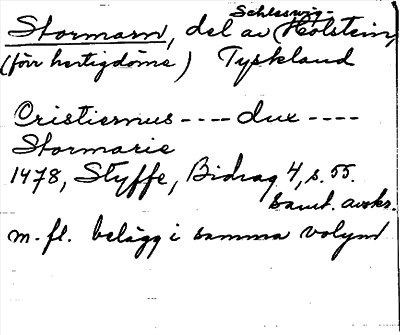 Stormarn, del av Schleswig-Holstein,
(förr hertigdöme) Tyskland
Cristiernus ---- dux ----
Stormarie
1478, Styffe, Bidrag 4, s. 55.
samt. avskr.
m. fl. belägg i samma volym